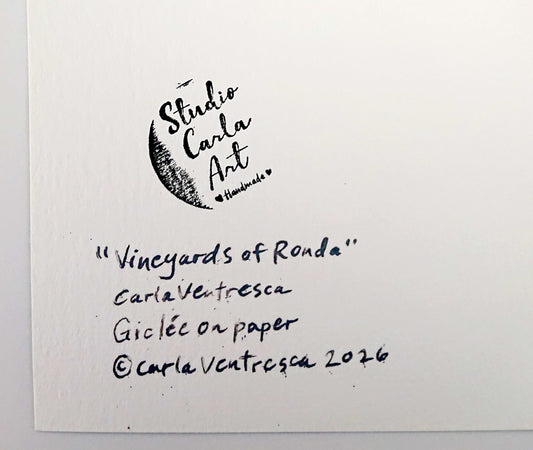 Studio
Carla
Art
♥Handmade♥
"Vineyards of Ronda"
Carla Ventresca
Giclée on paper
© Carla Ventresca 2026